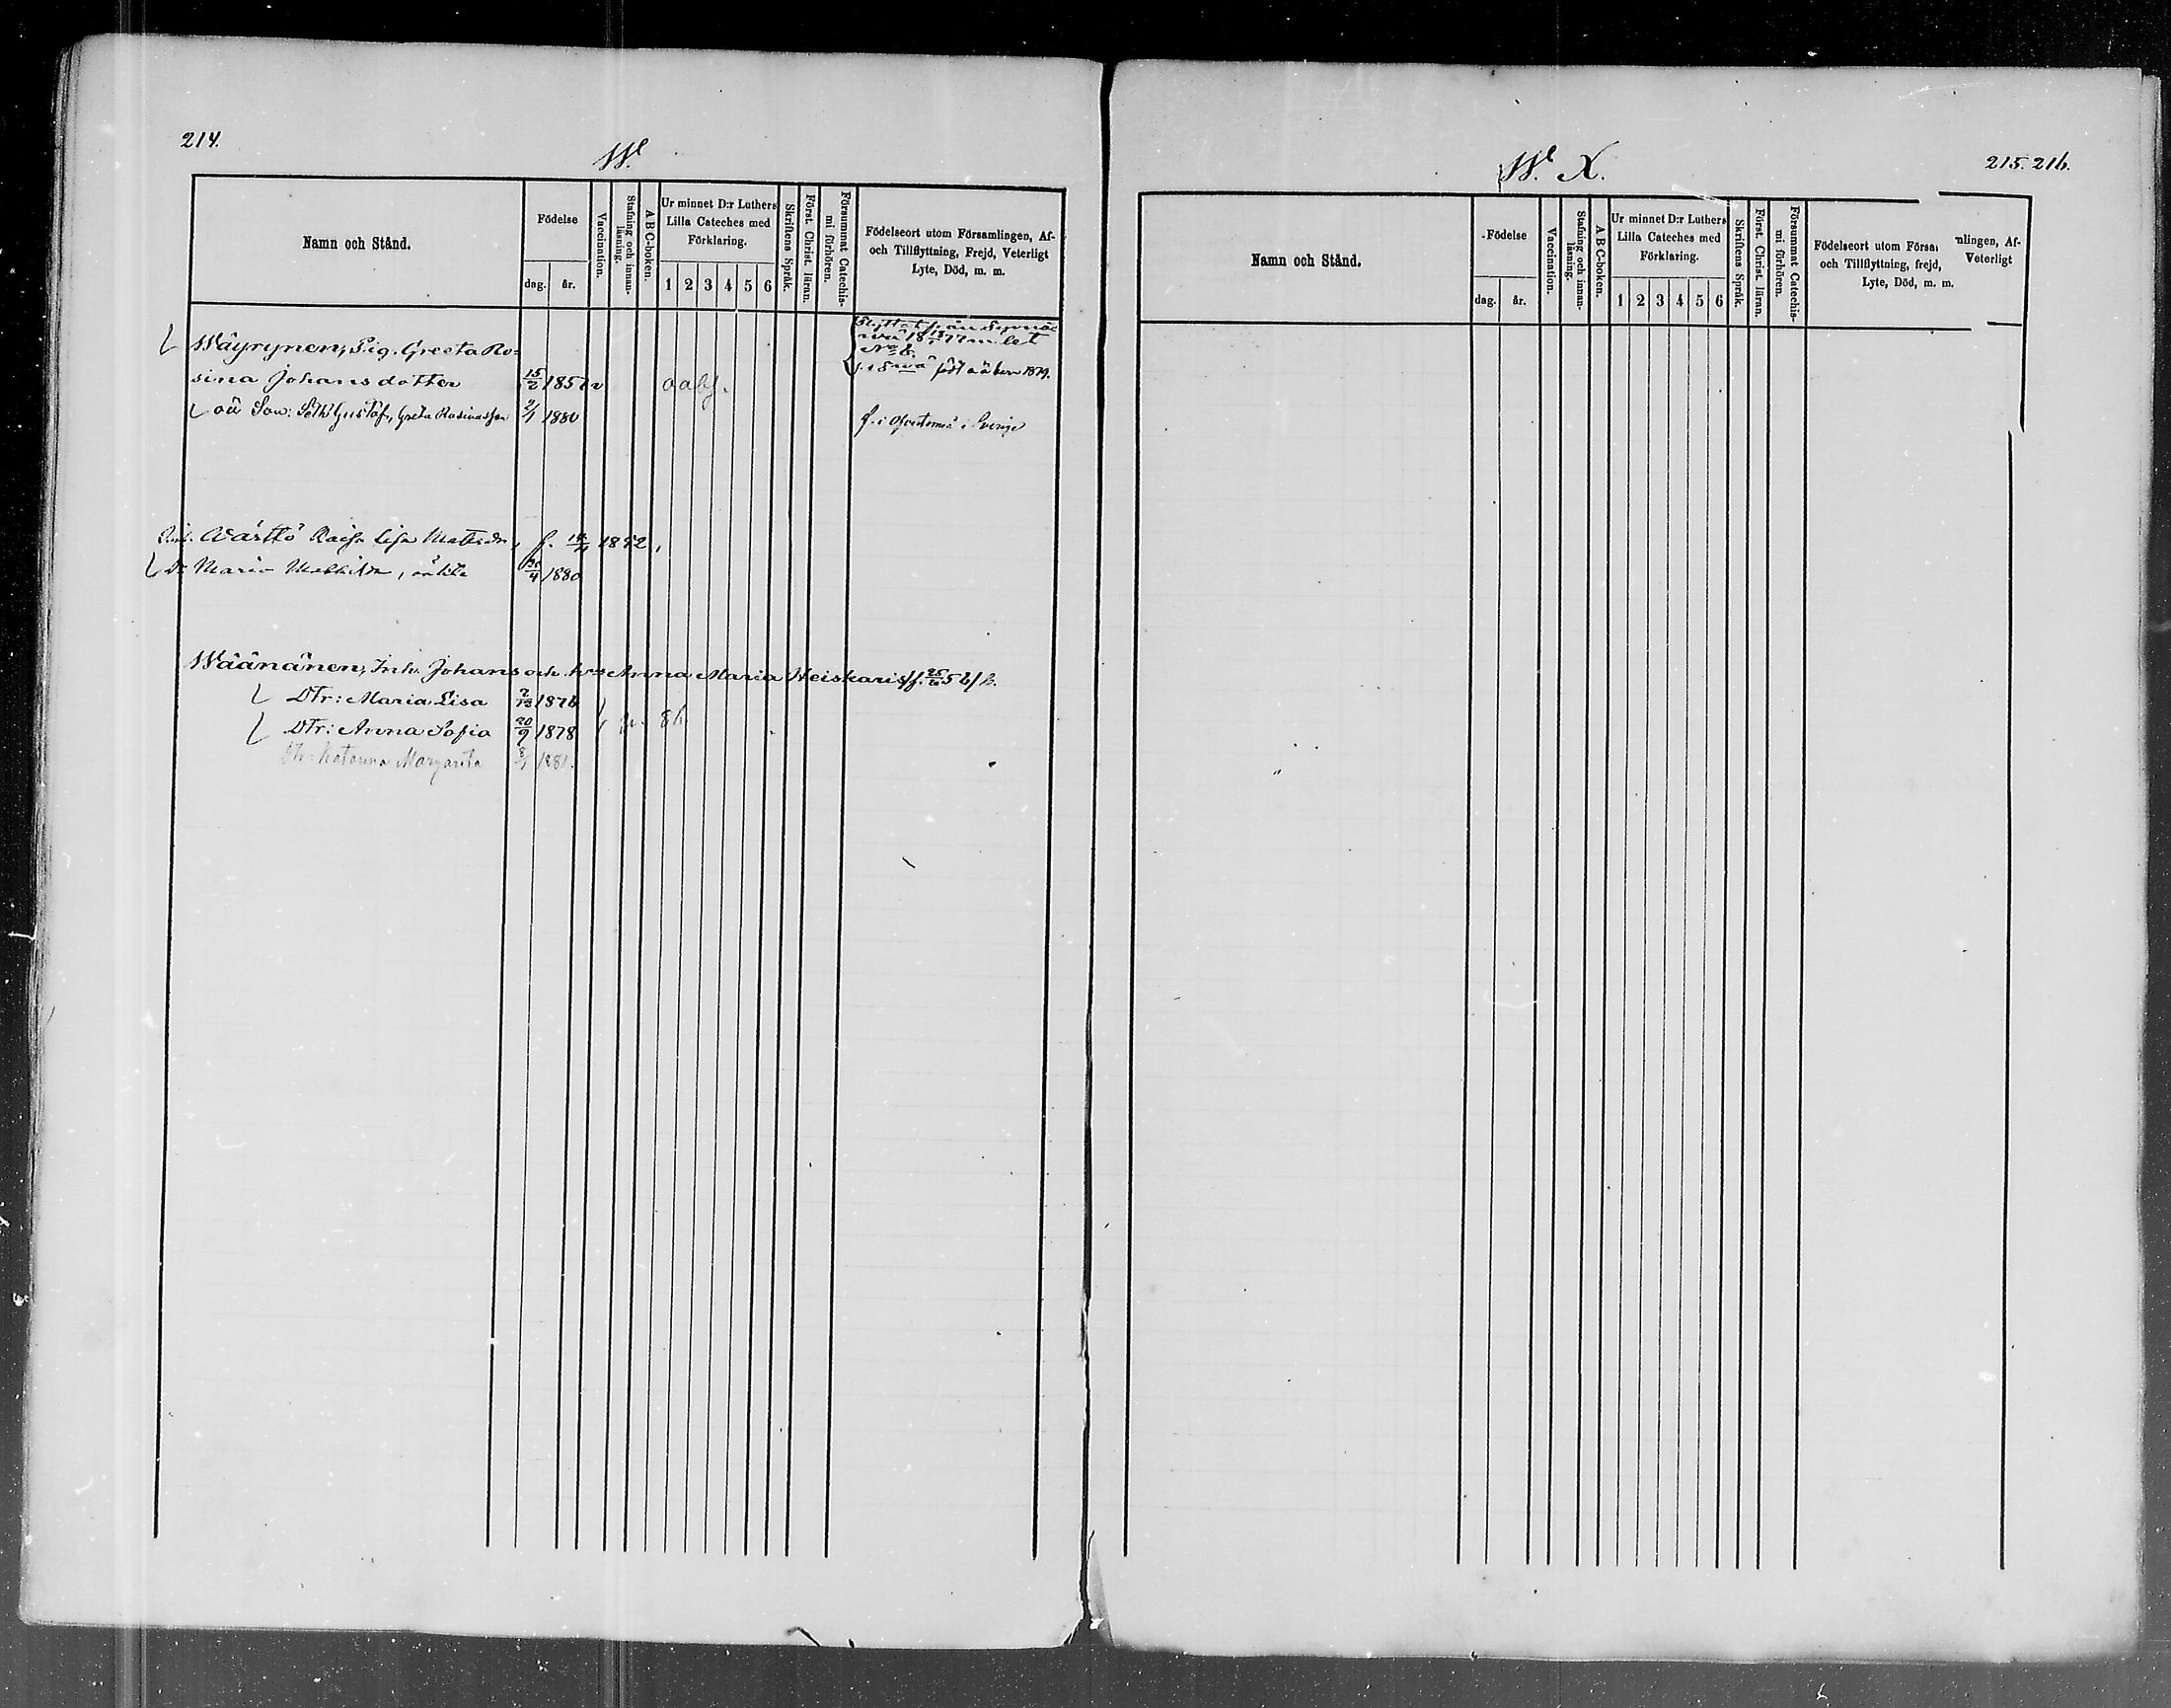 214.
W.
Namn och Stånd.
Födelse
dag.
år.
Vaccination.
Stafning och innan-
läsning.
A B C-boken.
Ur minnet D:r Luthers
Lilla Cateches med
Förklaring.
1 2 3 4 5 6
Skriftens Språk.
Först. Christ. läran.
Försummat Catechis-
mi förhören.
Födelseort utom Församlingen, Af-
och Tillflyttning, Frejd, Veterligt
Lyte, Död, m. m.
Wäyrynen, Pig. Greeta Ro-
sina Johansdotter 15/2 185
oä Son: Gustaf, Greta 2/1 1880
född oä barn 1879.
f. i i Sverige
Lisa f. 1852,
Maria 1880
Wäänänen, Inh. Johans och hos Anna Maria Heiskaris
Dtr: Maria Lisa 2/12 1876
Dtr: Anna Sofia 20/9 1878
Dtr: Katarina Margareta 1881.
W. X.
215. 216.
Namn och Stånd.
Födelse
dag.
år.
Vaccination.
Stafning och innan-
läsning.
A B C-boken.
Ur minnet D:r Luthers
Lilla Cateches med
Förklaring.
1 2 3 4 5 6
Skriftens Språk.
Först. Christ. läran.
Försummat Catechis-
mi förhören.
Födelseort utom Försa mlingen, Af-
och Tillflyttning, frejd, Veterligt
Lyte, Död, m. m.